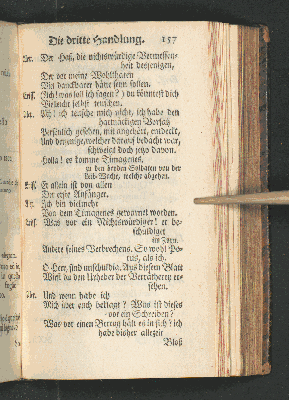 Die dritte Handlung. 157
Der Haß, die nichtswürdige Vermessen-
heit desjenigen,
Der vor meine Wohlthaten
Mir danckbarer hätte seyn sollen.
(Ach! was soll ich sagen?) du könntest dich
Vielleicht selbst teuschen.
Ach! ich teusche mich nicht, ich habe den
hartnäckigen Vorsatz
Persönlich gesehen, mit angehört, entdeckt,
Und derjenige welcher darauf bedacht war,
schweigt doch jetzo davon.
Holla! es komme Timagenes,
zu den beyden Soldaten von der
Leib-Wache, welche abgehen.
Er allein ist von allen
Der erste Anfänger.
Ich bin vielmehr
Von dem Timagenes gewarnet worden.
Was vor ein Nichtswürdiger! er be-
schuldiget
im Zorn.
Andere seines Verbrechens. So wohl Po-
rus, als ich.
O Herr, sind unschuldig. Aus diesem Blatt
Wirst du den Urheber der Verrätherey er-
sehen.
Und wenn habe ich
Mich über euch beklagt? Was ist dieses
vor ein Schreiben?
Was vor einen Betrug hält es in sich? ich
habe bisher allezeit
Bloß